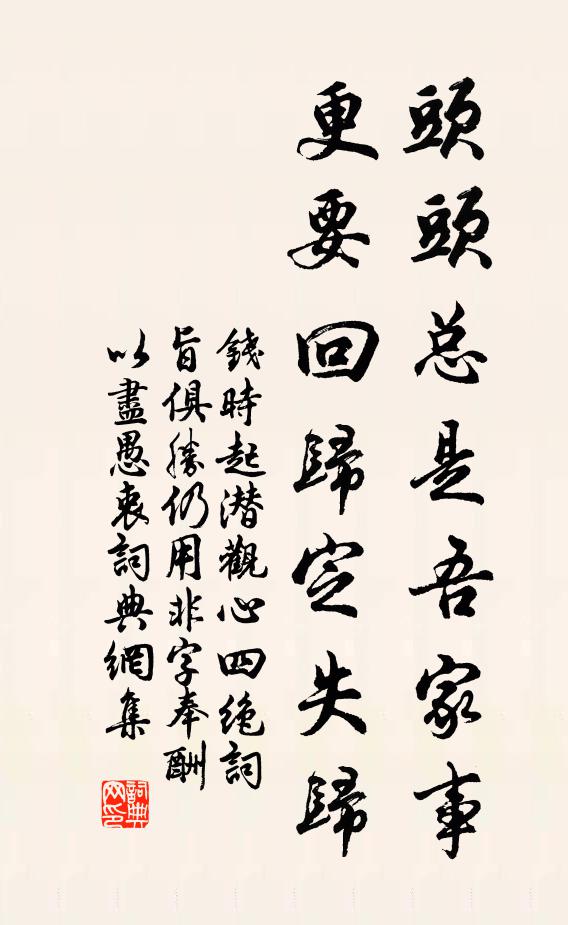 頭頭总是吾家事
更要回歸定失歸
錢時起潜觀心四绝詞
旨俱勝仍用非字奉酬
以盡愚衷詞典網集
詞典网印